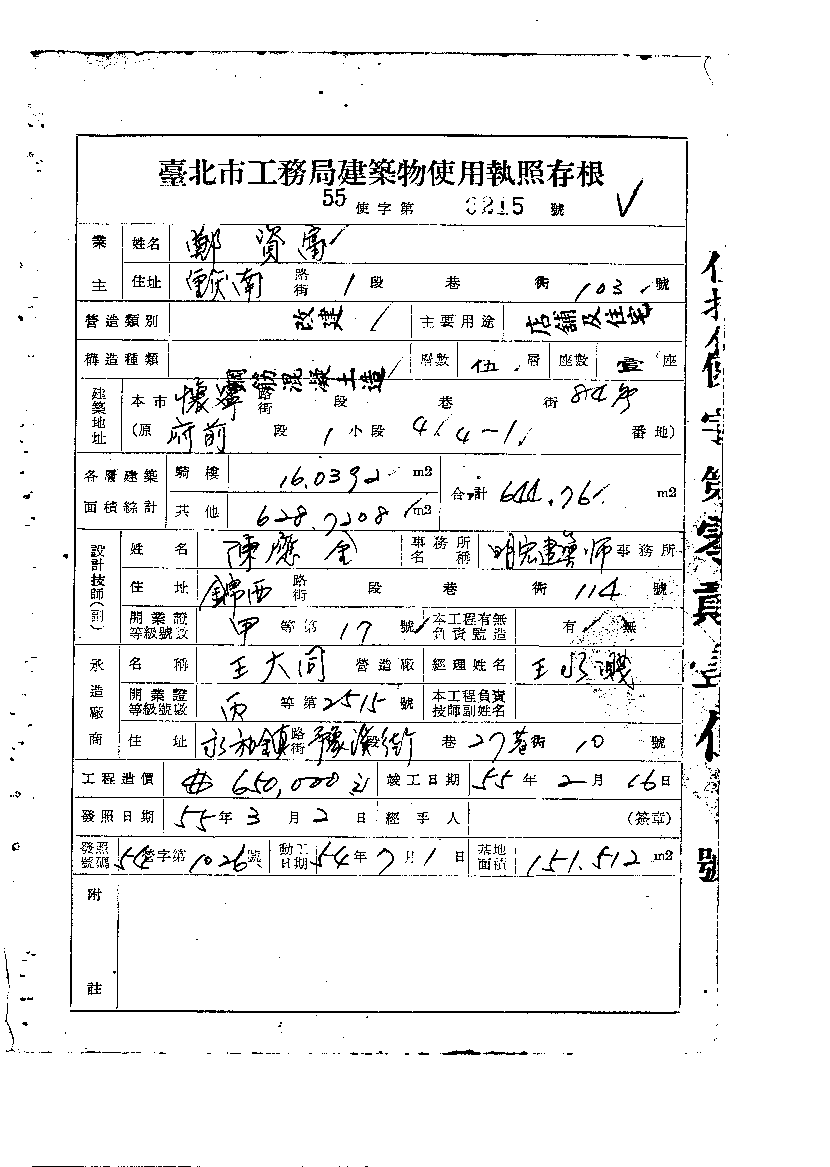 臺北市工務局建築物使用執照存根
55 使字第 0215 號
業主 姓名 鄭資富
住址 重慶南 路街 1 段 巷 衖 103 號
營造類別 改建 主要用途 店舖及住宅
構造種類 鋼筋混凝土造 層數 伍 層 座數 壹 座
建築地址 本市 懷寧 路街 段 巷 衖 84 号
(原 府前 段 1 小段 4/4-1 番地)
各層建築面積綜計 騎樓 16.0392 m2 合計 644.76 m2
其他 628.7208 m2
設計技師(副) 姓名 陳應金 事務所名稱 明宏建築師 事務所
住址 錦西 路街 段 巷 衖 114 號
開業證等級號數 甲 等第 17 號 本工程有無負責監造 有 無
承造廠商 名稱 王大同 營造廠 經理姓名 王
開業證等級號數 丙 等第 2515 號 本工程負責技師副姓名
住址 永和鎮 路街 豫溪街 段 巷 27巷 衖 10 號
工程造價 650,000 竣工日期 55 年 2 月 16 日
發照日期 55 年 3 月 2 日 經手人 (簽章)
發照號碼 54 營字第 1026 號 動工日期 54 年 7 月 1 日 基地面積 151.512 m2
附註
字第零貳壹 號